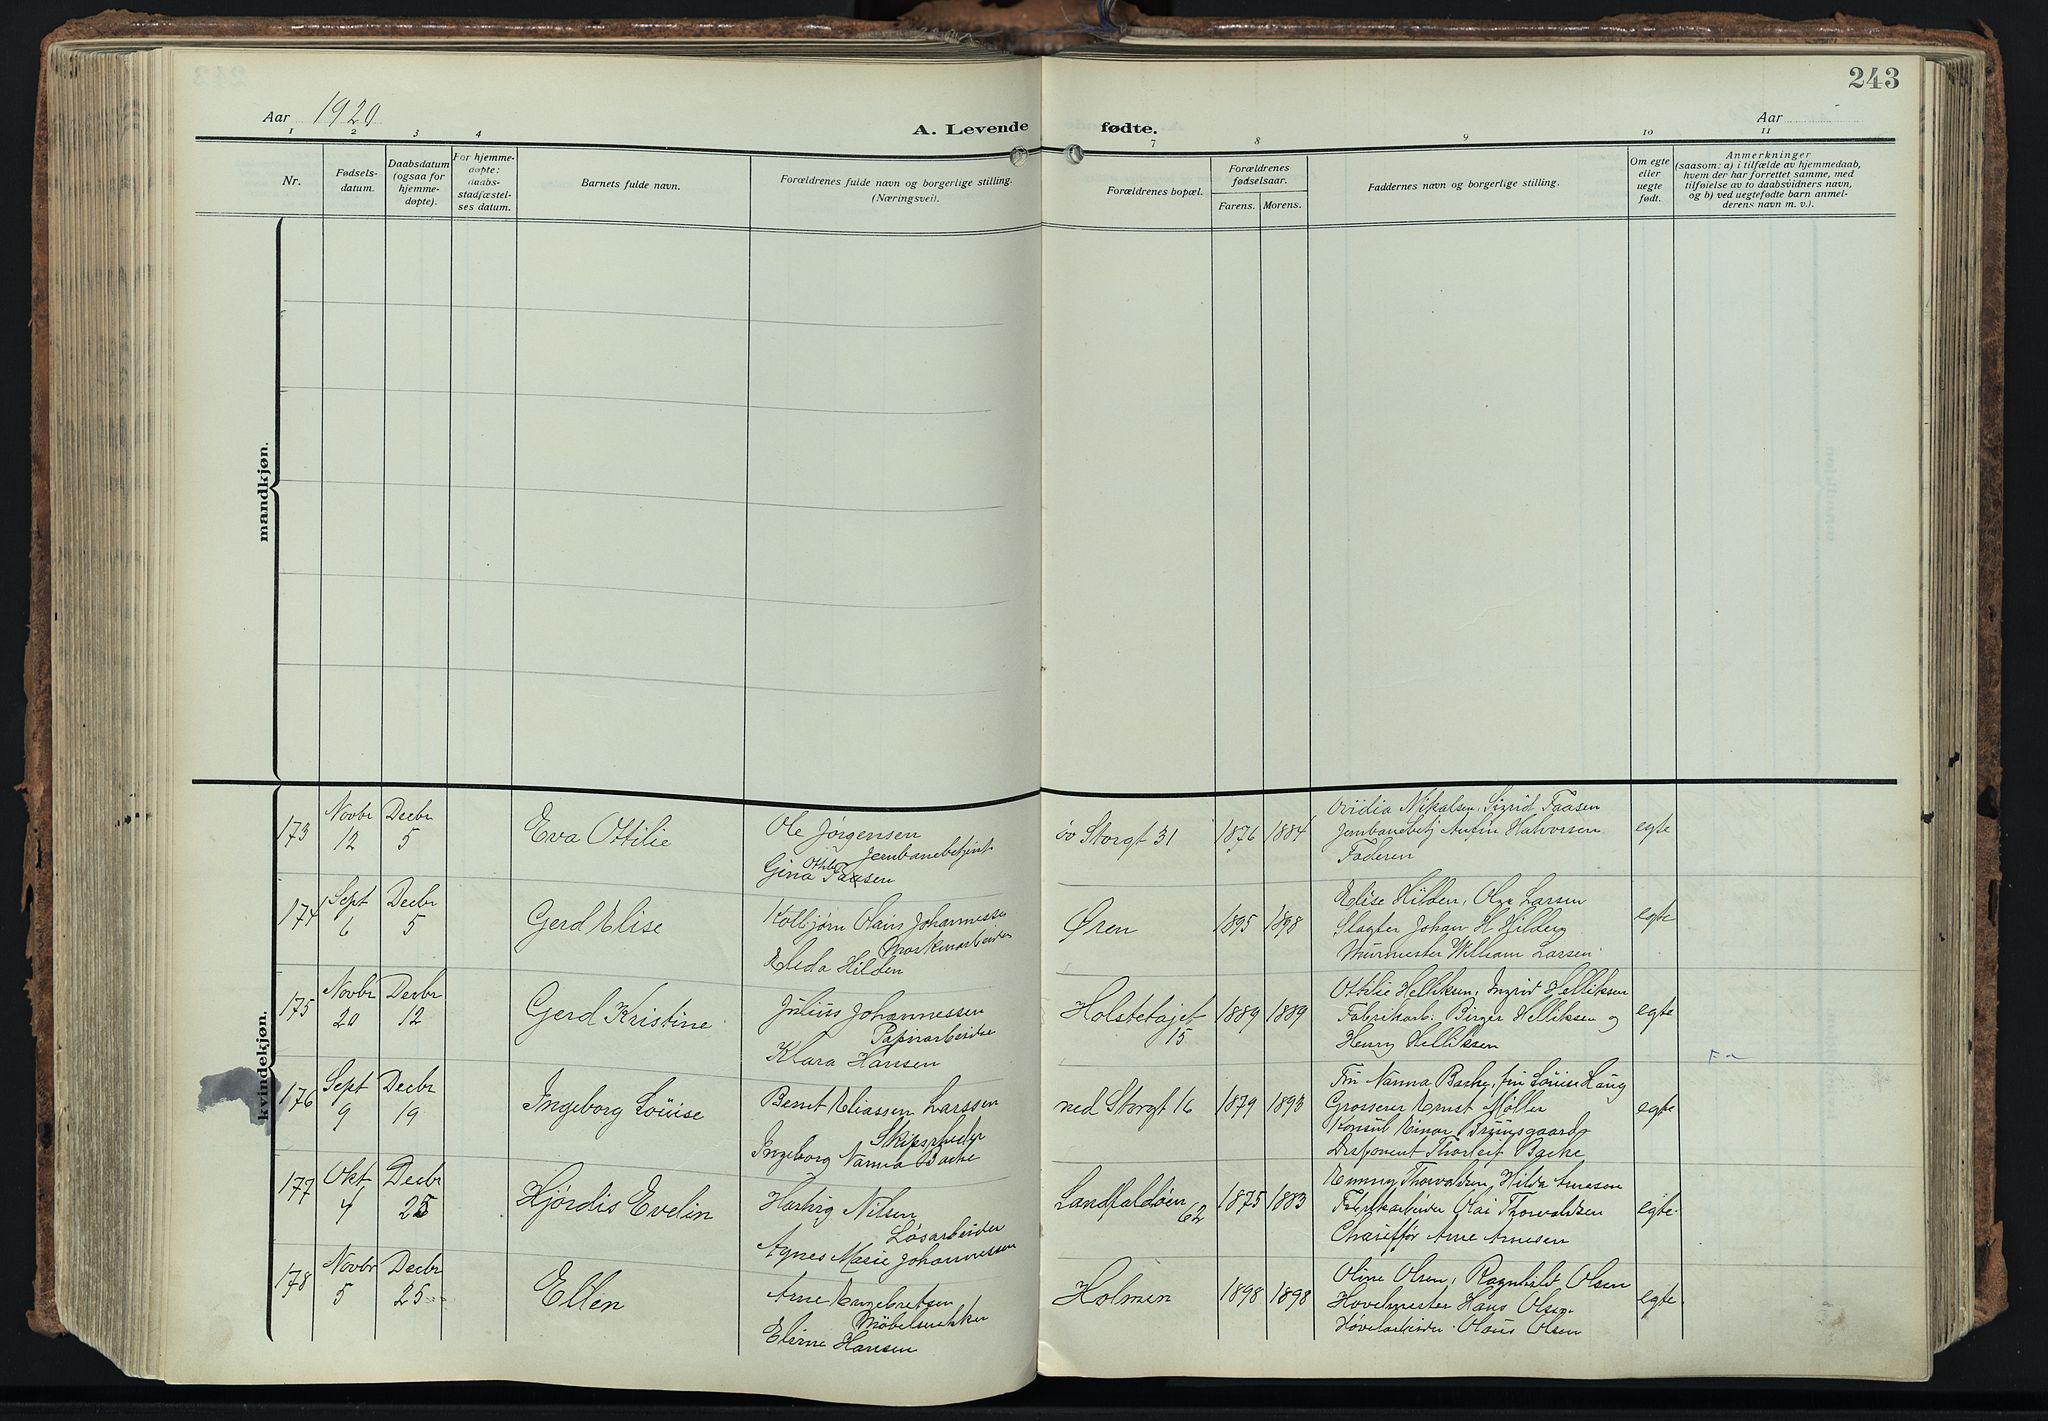 243
Aar 1920
A. Levende fødte.
Aar
1 2 3 4 7 8 9 10 11
Nr.
Fødsels-
datum.
Daabsdatum
(ogsaa for
hjemme-
døpte).
For hjemme-
døpte:
daabs-
stadfæstel-
ses datum.
Barnets fulde navn.
Forældrenes fulde navn og borgerlige stilling.
(Næringsvei).
Forældrenes bopæl.
Forældrenes
fødselsaar.
Farens. Morens.
Faddernes navn og borgerlige stilling.
Om egte
eller
uegte
født.
Anmerkninger
(saasom: a) i tilfælde av hjemmedaab,
hvem der har forrettet samme, med
tilføielse av to daabsvidners navn,
og b) ved uegtefødte barn anmel-
derens navn m. v.).
mandkjøn.
kvindekjøn.
173
Novbr
12
Decbr
5
Eva Ottilie
Ole Jørgensen
Jernbanebetjent
Gina Othilie Faasen
øv Storgt 31
1876
1884
Ovidia Nikalsen, Sigrid Faasen
Jernbanebetj Halvorsen
Faderen
egte
174
Sept
6
Decbr
5
Gerd Elise
Kolbjørn Olais Johannessen
Elida Hilden
Øren
1895
1898
Elise Hilden, Olga Larsen
Slagter Johan H Hilden
Murmester William Larsen
egte
175
Novbr
20
Decbr
12
Gerd Kristine
Julius Johannessen
Papirarbeider
Klara Hansen
Holstetajet
15
1889
1889
Ottilie Helliksen, Ingrid Helliksen
Fabrikarb. Birger Helliksen og
Henry Helliksen
egte
176
Sept
9
Decbr
19
Ingeborg Louise
Bernt Eliassen Larssen
Skipsreder
Ingeborg Nanna Bache
ned Storgt 16
1879
1893
Fru Nanna Bache, fru Louise Haug
Grosserer Ernst Møller
Konsul Einar Bruusgaard
Disponent Thorleif Bache
egte
177
Okt
4
Decbr
25
Hjørdis Evelin
Hartvig Nilsen
Løsarbeider
Agnes Marie Johannessen
Landfaldøen
62
1875
1883
Emmy Thorvaldsen, Hilda Arnesen
Fabrikarbeider Olai Thorvaldsen
Chauffør Arne Arnesen
egte.
178
Novbr
5
Decbr
25
Ellen
Arne Engebretsen
Møbelsnekker
Eline Hansen
Holmen
1898
1898
Oline Olsen, Ragnhild Olsen
Høvelmester Hans Olsen
Høvelarbeider Olaus Olsen
egte.